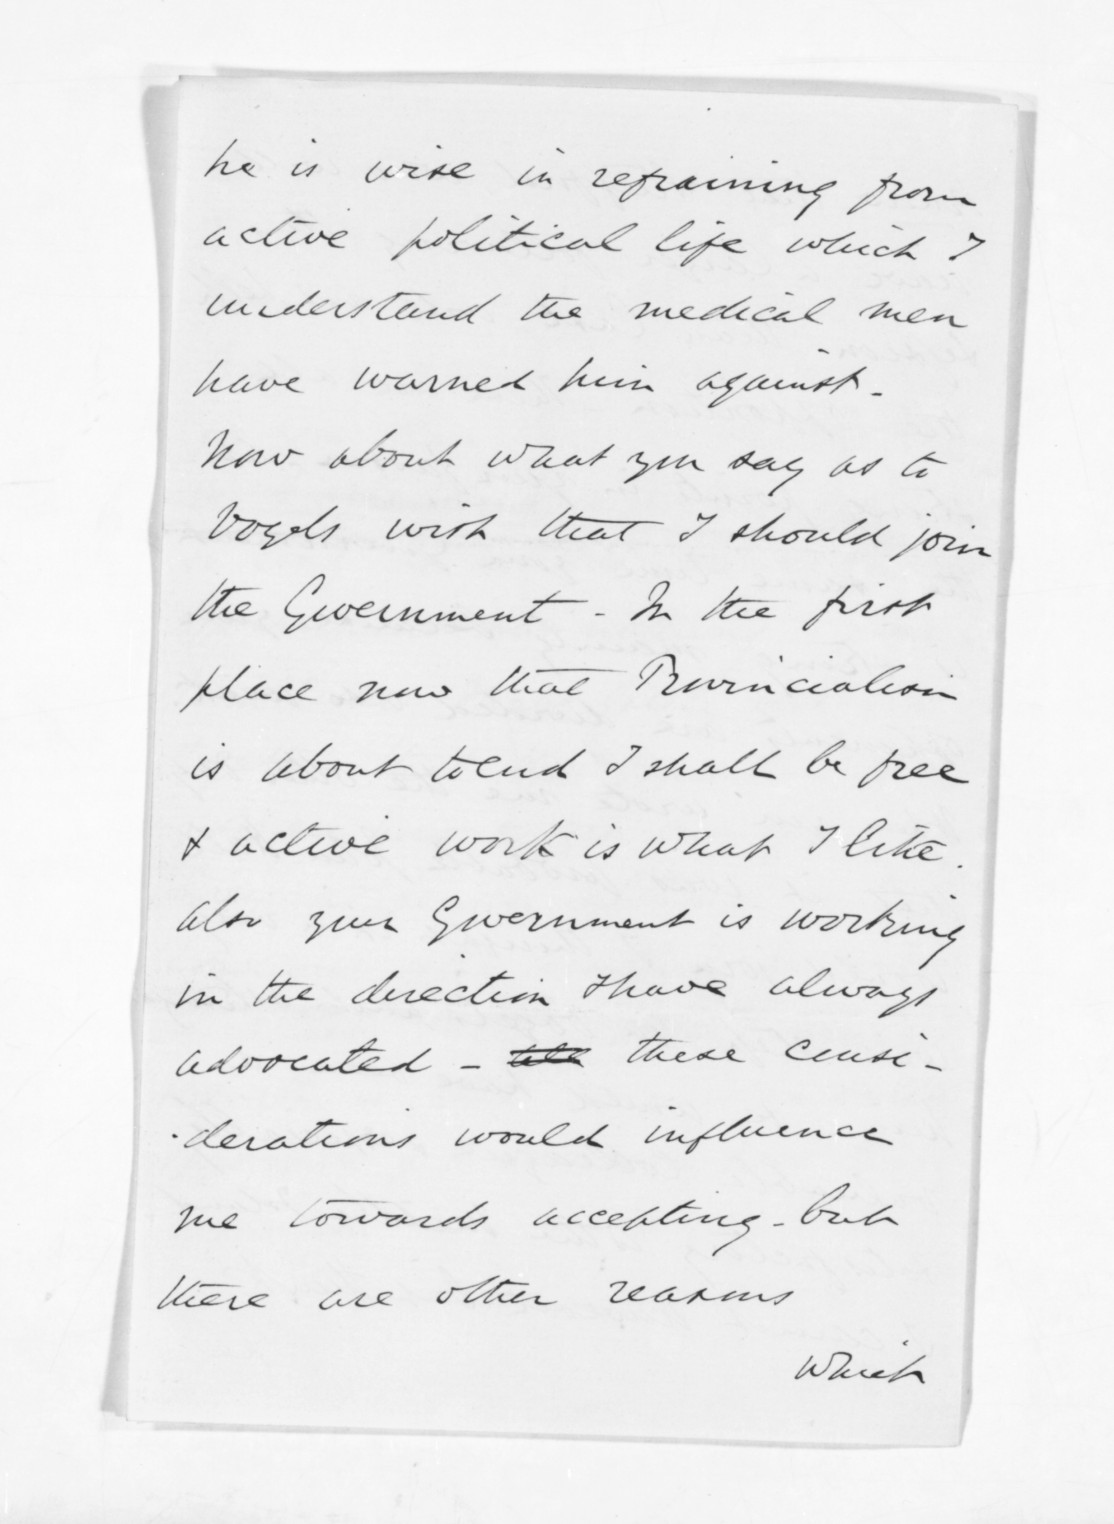 he is wise in refraining from
active political life which I
understand the medical men
have warned him against -
Now about what you say as to
Vogels wish that I should join
the Government - In the first
place now that Provincialism
is about to end I shall be free
& active work is what I like.
also your Government is working
in the direction I have always
advocated - all these consi-
-derations would influence
me towards accepting - but
there are other reasons
which